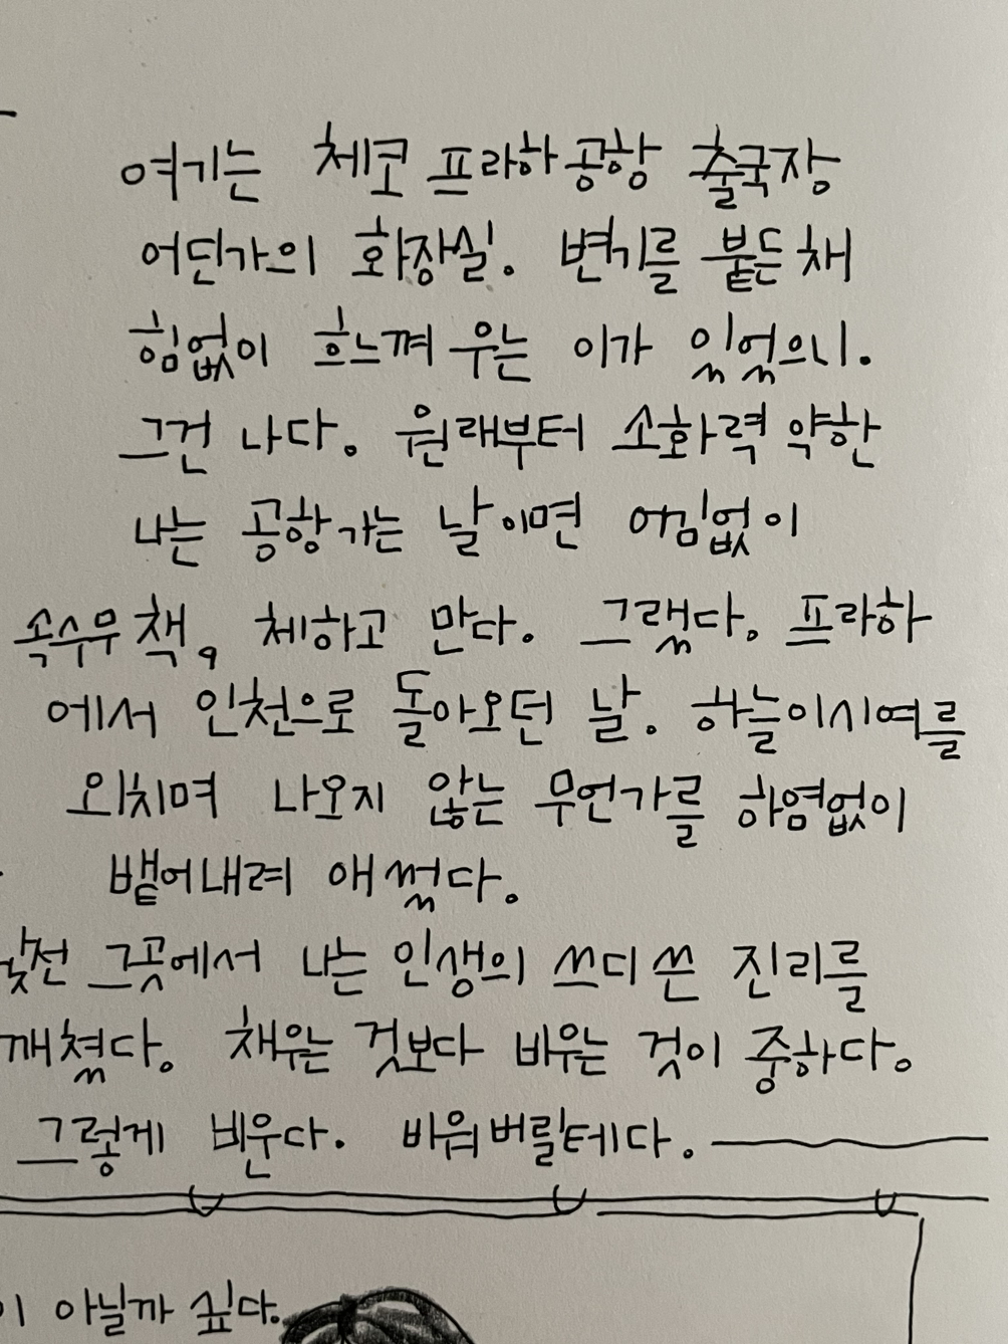 여기는 체코 프라하공항 출국장
어딘가의 화장실. 변기를 붙든 채
힘없이 흐느껴 우는 이가 있었으니.
그건 나다. 원래부터 소화력 약한
나는 공항가는 날이면 어김없이
속수무책, 체하고 만다. 그랬다. 프라하
에서 인천으로 돌아오던 날. 하늘이시여를
외치며 나오지 않는 무언가를 하염없이
뱉어내려 애썼다.
낯선 그곳에서 나는 인생의 쓰디 쓴 진리를
깨쳤다. 채우는 것보다 비우는 것이 중하다.
그렇게 비운다. 비워버릴테다.
이 아닐까 싶다.